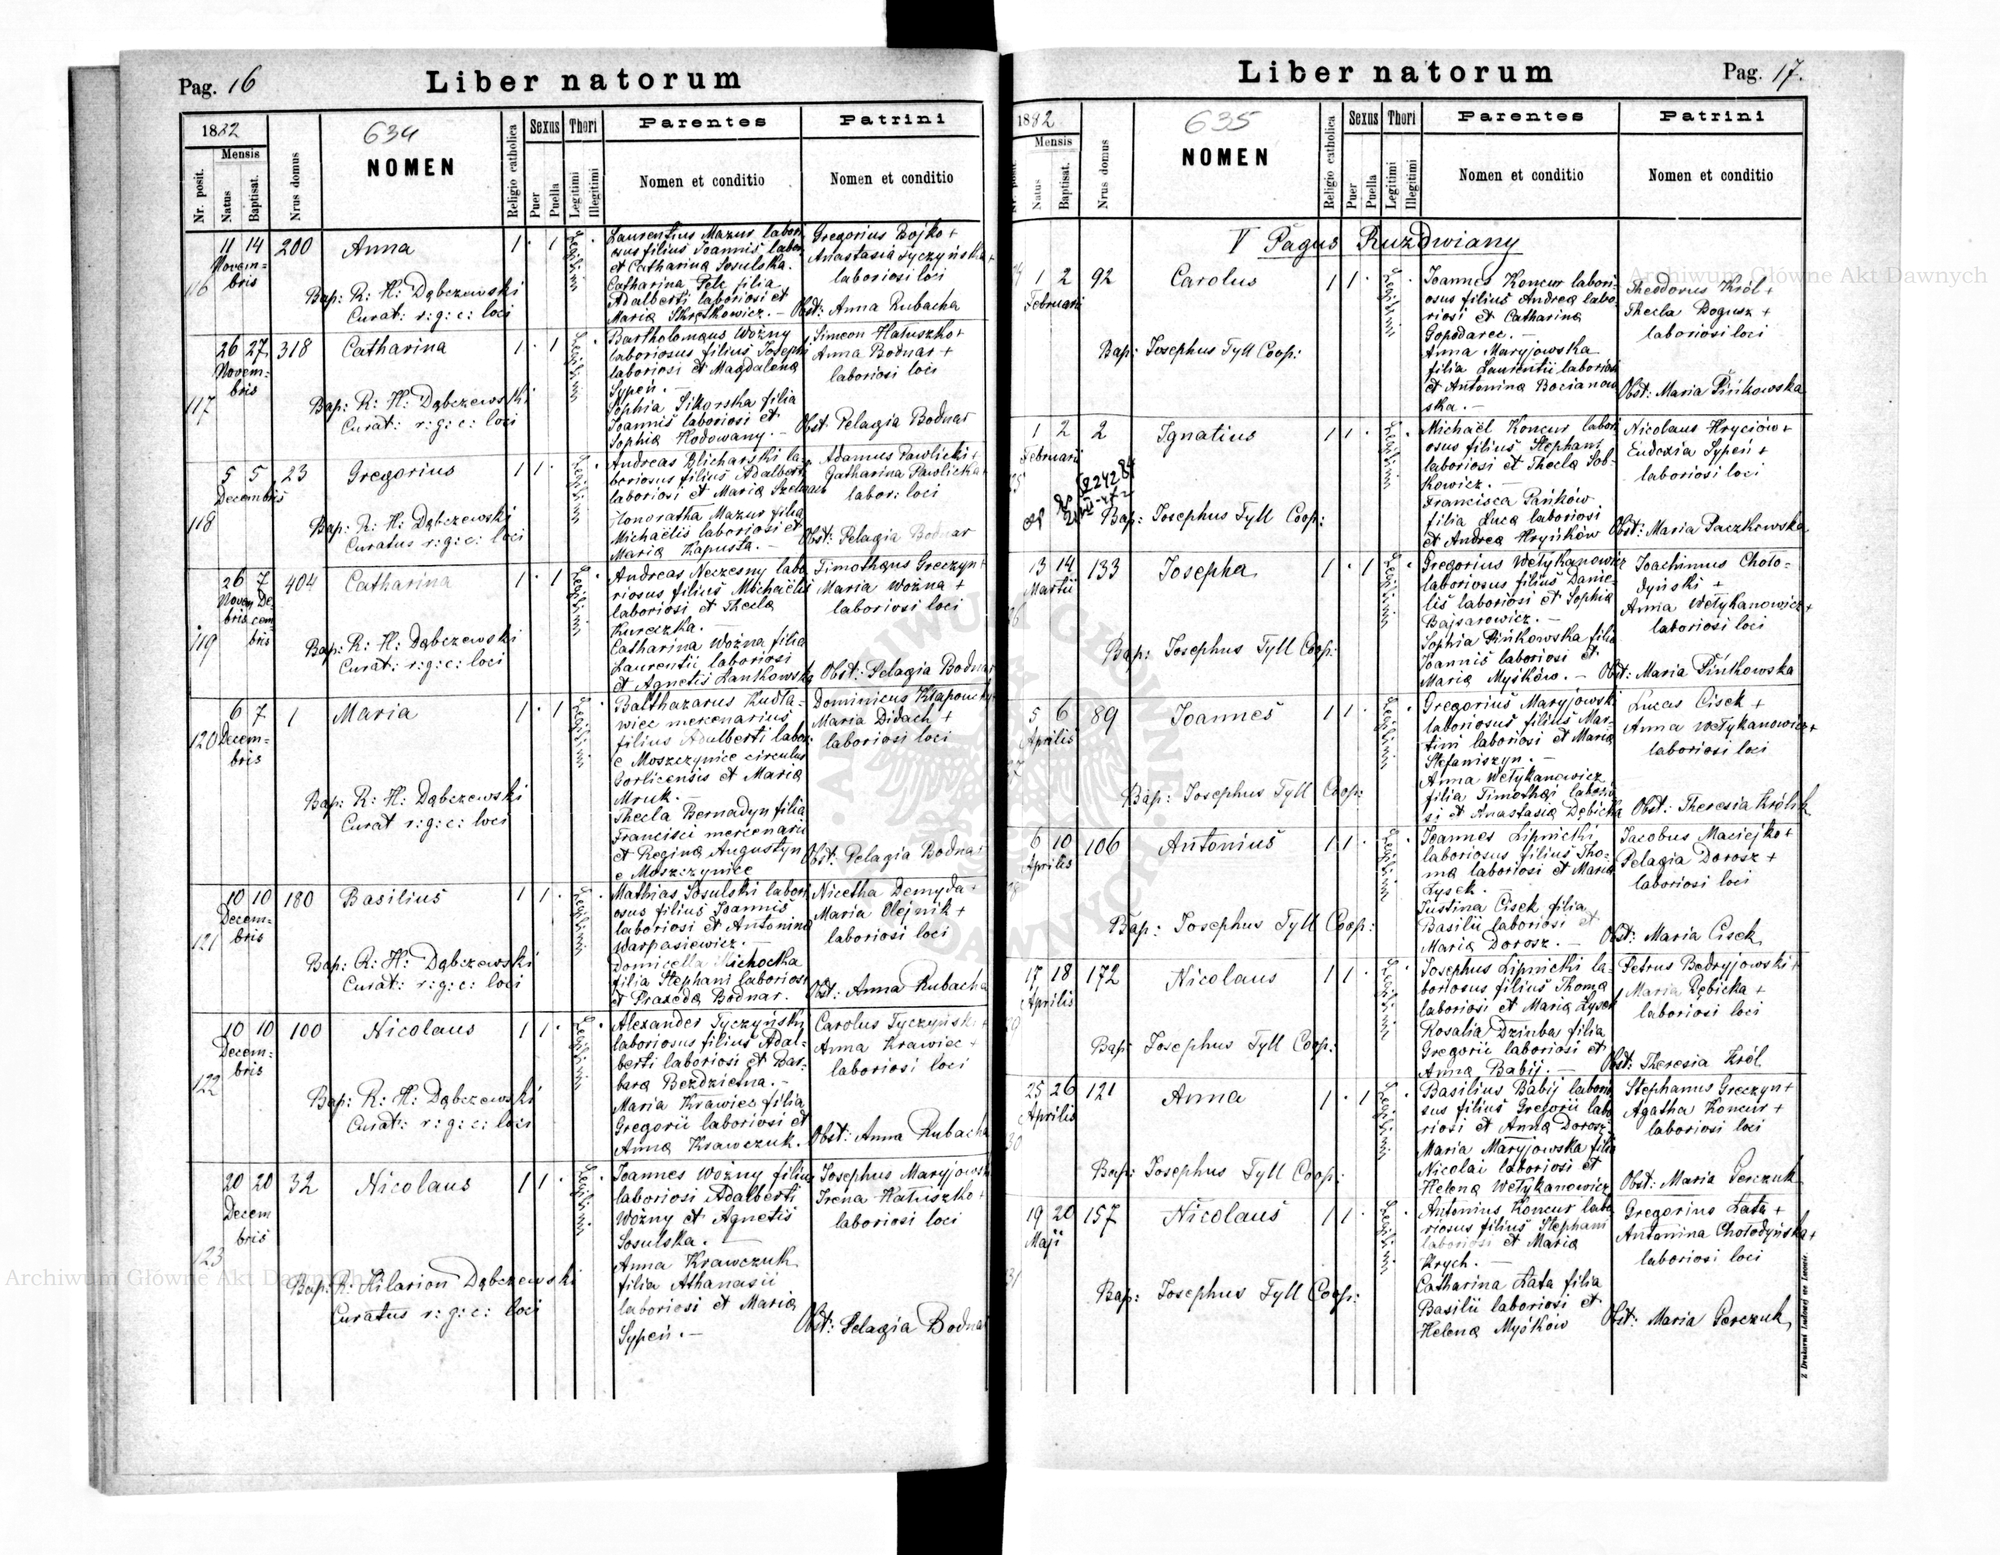 Pag. 16
Liber natorum
1882
634
NOMEN
Mensis
Nr. posit.
Natus
Baptisat.
Nrus domus
Religio catholica
Sexus
Puer
Puella
Thori
Legitimi
Illegitimi
Parentes
Nomen et conditio
Patrini
Nomen et conditio
116
11 14 200 Anna 1 · 1
Novem-
bris
Bap: R: H: Dąbczewski
Curat: r: g: c: loci
Legitimi
Laurentius Mazur labori
osus filius Joannis labor.
et Catharina Sosulska.
Catharina Pele filia
Adalberti laboriosi et
Maria Skrętkowicz. —
Gregorius Bojko +
Anastasia Tyczyńska +
laboriosi loci
Obst: Anna Rubacha
117
26 27 318 Catharina 1 · 1
Novem-
bris
Bap: R: H: Dąbczewski
Curat: r: g: c: loci
Legitimi
Bartholomæus Woźny
laboriosus filius Josephi
laboriosi et Magdalena
Sypeń. —
Sophia Sikorska filia
Joannis laboriosi et
Sophia Hodowany. —
Simeon Hałuszko +
Anna Bodnar +
laboriosi loci
Obst: Pelagia Bodnar
118
5 5 23 Gregorius 1 1 ·
Decembris
Bap: R: H: Dąbczewski
Curatus r: g: c: loci
Legitimi
Andreas Blicharski la-
boriosus filius Adalberti
laboriosi et Maria Szelmach
Honoratha Mazur filia
Michaëlis laboriosi et
Maria Kapusta. —
Adamus Pawlicki +
Catharina Pawlicka +
labori: loci
Obst: Pelagia Bodnar
119
26 7 404 Catharina 1 · 1
Novem De-
bris cem-
bris
Bap: R: H: Dąbczewski
Curat: r: g: c: loci
Legitimi
Andreas Neczesny labo
riosus filius Michaëlis
laboriosi et Thecla
Kureczka. —
Catharina Woźna filia
Laurentii laboriosi
et Agnetis Zankowska
Timothæus Greczyn +
Maria Woźna +
laboriosi loci
Obst: Pelagia Bodnar
120
6 7 1 Maria 1 · 1
Decem-
bris
Bap: R: H: Dąbczewski
Curat r: g: c: loci
Legitimi
Balthazarus Kudła-
wiec mercenarius
filius Adalberti labor.
e Moszczynice circulus
Gorlicensis et Maria
Mruk. —
Thecla Bernadyn filia
Francisci mercenarii
et Regina Augustyn
e Moszczynice
Dominicus Kłapoucky
Maria Didach +
laboriosi loci
Obst: Pelagia Bodnar
121
10 10 180 Basilius 1 1 ·
Decem-
bris
Bap: R: H: Dąbczewski
Curat: r: g: c: loci
Legitimi
Mathias Sosulski labori
osus filius Joannis
laboriosi et Antonina
Warpasiewicz. —
Domicella Michocka
filia Stephani laboriosi
et Praxeda Bodnar.
Nicetha Demyda +
Maria Olejnik +
laboriosi loci
Obst: Anna Rubacha
122
10 10 100 Nicolaus 1 1 ·
Decem-
bris
Bap: R: H: Dąbczewski
Curat: r: g: c: loci
Legitimi
Alexander Tyczyński
laboriosus filius Adal-
berti laboriosi et Bar-
bara Bezdzietna. —
Maria Krawiec filia
Gregorii laboriosi et
Anna Krawczuk.
Carolus Tyczyński +
Anna Krawiec +
laboriosi loci
Obst: Anna Rubacha
123
20 20 32 Nicolaus 1 1 ·
Decem
bris
Bap: R: Hilarion Dąbczewski
Curatus r: g: c: loci
Legitimi
Joannes Woźny filius
laboriosi Adalberti
Woźny et Agnetis
Sosulska. —
Anna Krawczuk
filia Athanasii
laboriosi et Maria
Sypeń. —
Josephus Maryjowski
Irena Hałuszko +
laboriosi loci
Obst: Pelagia Bodnar
Liber natorum
Pag. 17.
1882
635
NOMEN
Mensis
Natus
Baptisat.
Nrus domus
Religio catholica
Sexus
Puer
Puella
Thori
Legitimi
Illegitimi
Parentes
Nomen et conditio
Patrini
Nomen et conditio
V Pagus Ruzdwiany
1 2 92 Carolus 1 1 ·
Februarii
Bap: Josephus Tyll Coop:
Legitimi
Joannes Koncur labori-
osus filius Andrea labo-
riosi et Catharina
Gopodarec. —
Anna Maryjowska
filia Laurentii laboriosi
et Antonina Bocianow
ska. —
Theodorus Król +
Thecla Bogusz +
laboriosi loci
Obst: Maria Pińkowska
1 2 2 Ignatius 1 1 ·
Februarii
Bap: Josephus Tyll Coop:
Legitimi
Michaël Koncur labori
osus filius Stephani
laboriosi et Thecla Sob-
kowicz. —
Francisca Pańków
filia Luca laboriosi
et Andrea Hryńków
Nicolaus Hryciów +
Eudoxia Sypeń +
laboriosi loci
Obst: Maria Paczkowska
13 14 133 Josepha 1 · 1
Martii
Bap: Josephus Tyll Coop:
Legitimi
Gregorius Wełykanowicz
laboriosus filius Danie-
lis laboriosi et Sophia
Bajsarowicz. —
Sophia Pińkowska filia
Joannis laboriosi et
Maria Myśków. —
Joachimus Choło-
dyński +
Anna Wełykanowicz +
laboriosi loci
Obst: Maria Pińkowska
5 6 89 Joannes 1 1 ·
Aprilis
Bap: Josephus Tyll Coop:
Legitimi
Gregorius Maryjowski
laboriosus filius Mar-
tini laboriosi et Maria
Stefaniszyn. —
Anna Wełykanowicz
filia Timothæi laborio
si et Anastasia Dębicka
Lucas Cisek +
Anna Wełykanowicz +
laboriosi loci
Obst: Theresia Królik
6 10 106 Antonius 1 1 ·
Aprilis
Bap: Josephus Tyll Coop:
Legitimi
Joannes Lipnicki
laboriosus filius Tho-
ma laboriosi et Maria
Łysek. —
Justina Cisek filia
Basilii laboriosi et
Maria Dorosz. —
Jacobus Maciejko +
Pelagia Dorosz +
laboriosi loci
Obst: Maria Cisek
17 18 172 Nicolaus 1 1 ·
Aprilis
Bap: Josephus Tyll Coop:
Legitimi
Josephus Lipnicki la-
boriosus filius Thoma
laboriosi et Maria Łysek
Rosalia Dziuba filia
Gregorii laboriosi et
Anna Babij. —
Petrus Bedryjowski +
Maria Dębicka +
laboriosi loci
Obst: Theresia Król
30
25 26 121 Anna 1 · 1
Aprilis
Bap: Josephus Tyll Coop:
Legitimi
Basilius Babij laborio
sus filius Gregorii labo
riosi et Anna Dorosz
Maria Maryjowska filia
Nicolai laboriosi et
Helena Wełykanowicz
Stephanus Greczyn +
Agatha Koncur +
laboriosi loci
Obst: Maria Gerczuk
31
19 20 157 Nicolaus 1 1 ·
Maji
Bap: Josephus Tyll Coop:
Legitimi
Antonius Koncur labo
riosus filius Stephani
laboriosi et Maria
Krych. —
Catharina Łata filia
Basilii laboriosi et
Helena Myśków
Gregorius Łata +
Antonina Chołodyńska +
laboriosi loci
Obst: Maria Gerczuk
Z Drukarni Ludowej we Lwowie.
Archiwum Główne Akt Dawnych
Archiwum Główne Akt Dawnych
ARCHIWUM GŁÓWNE AKT DAWNYCH